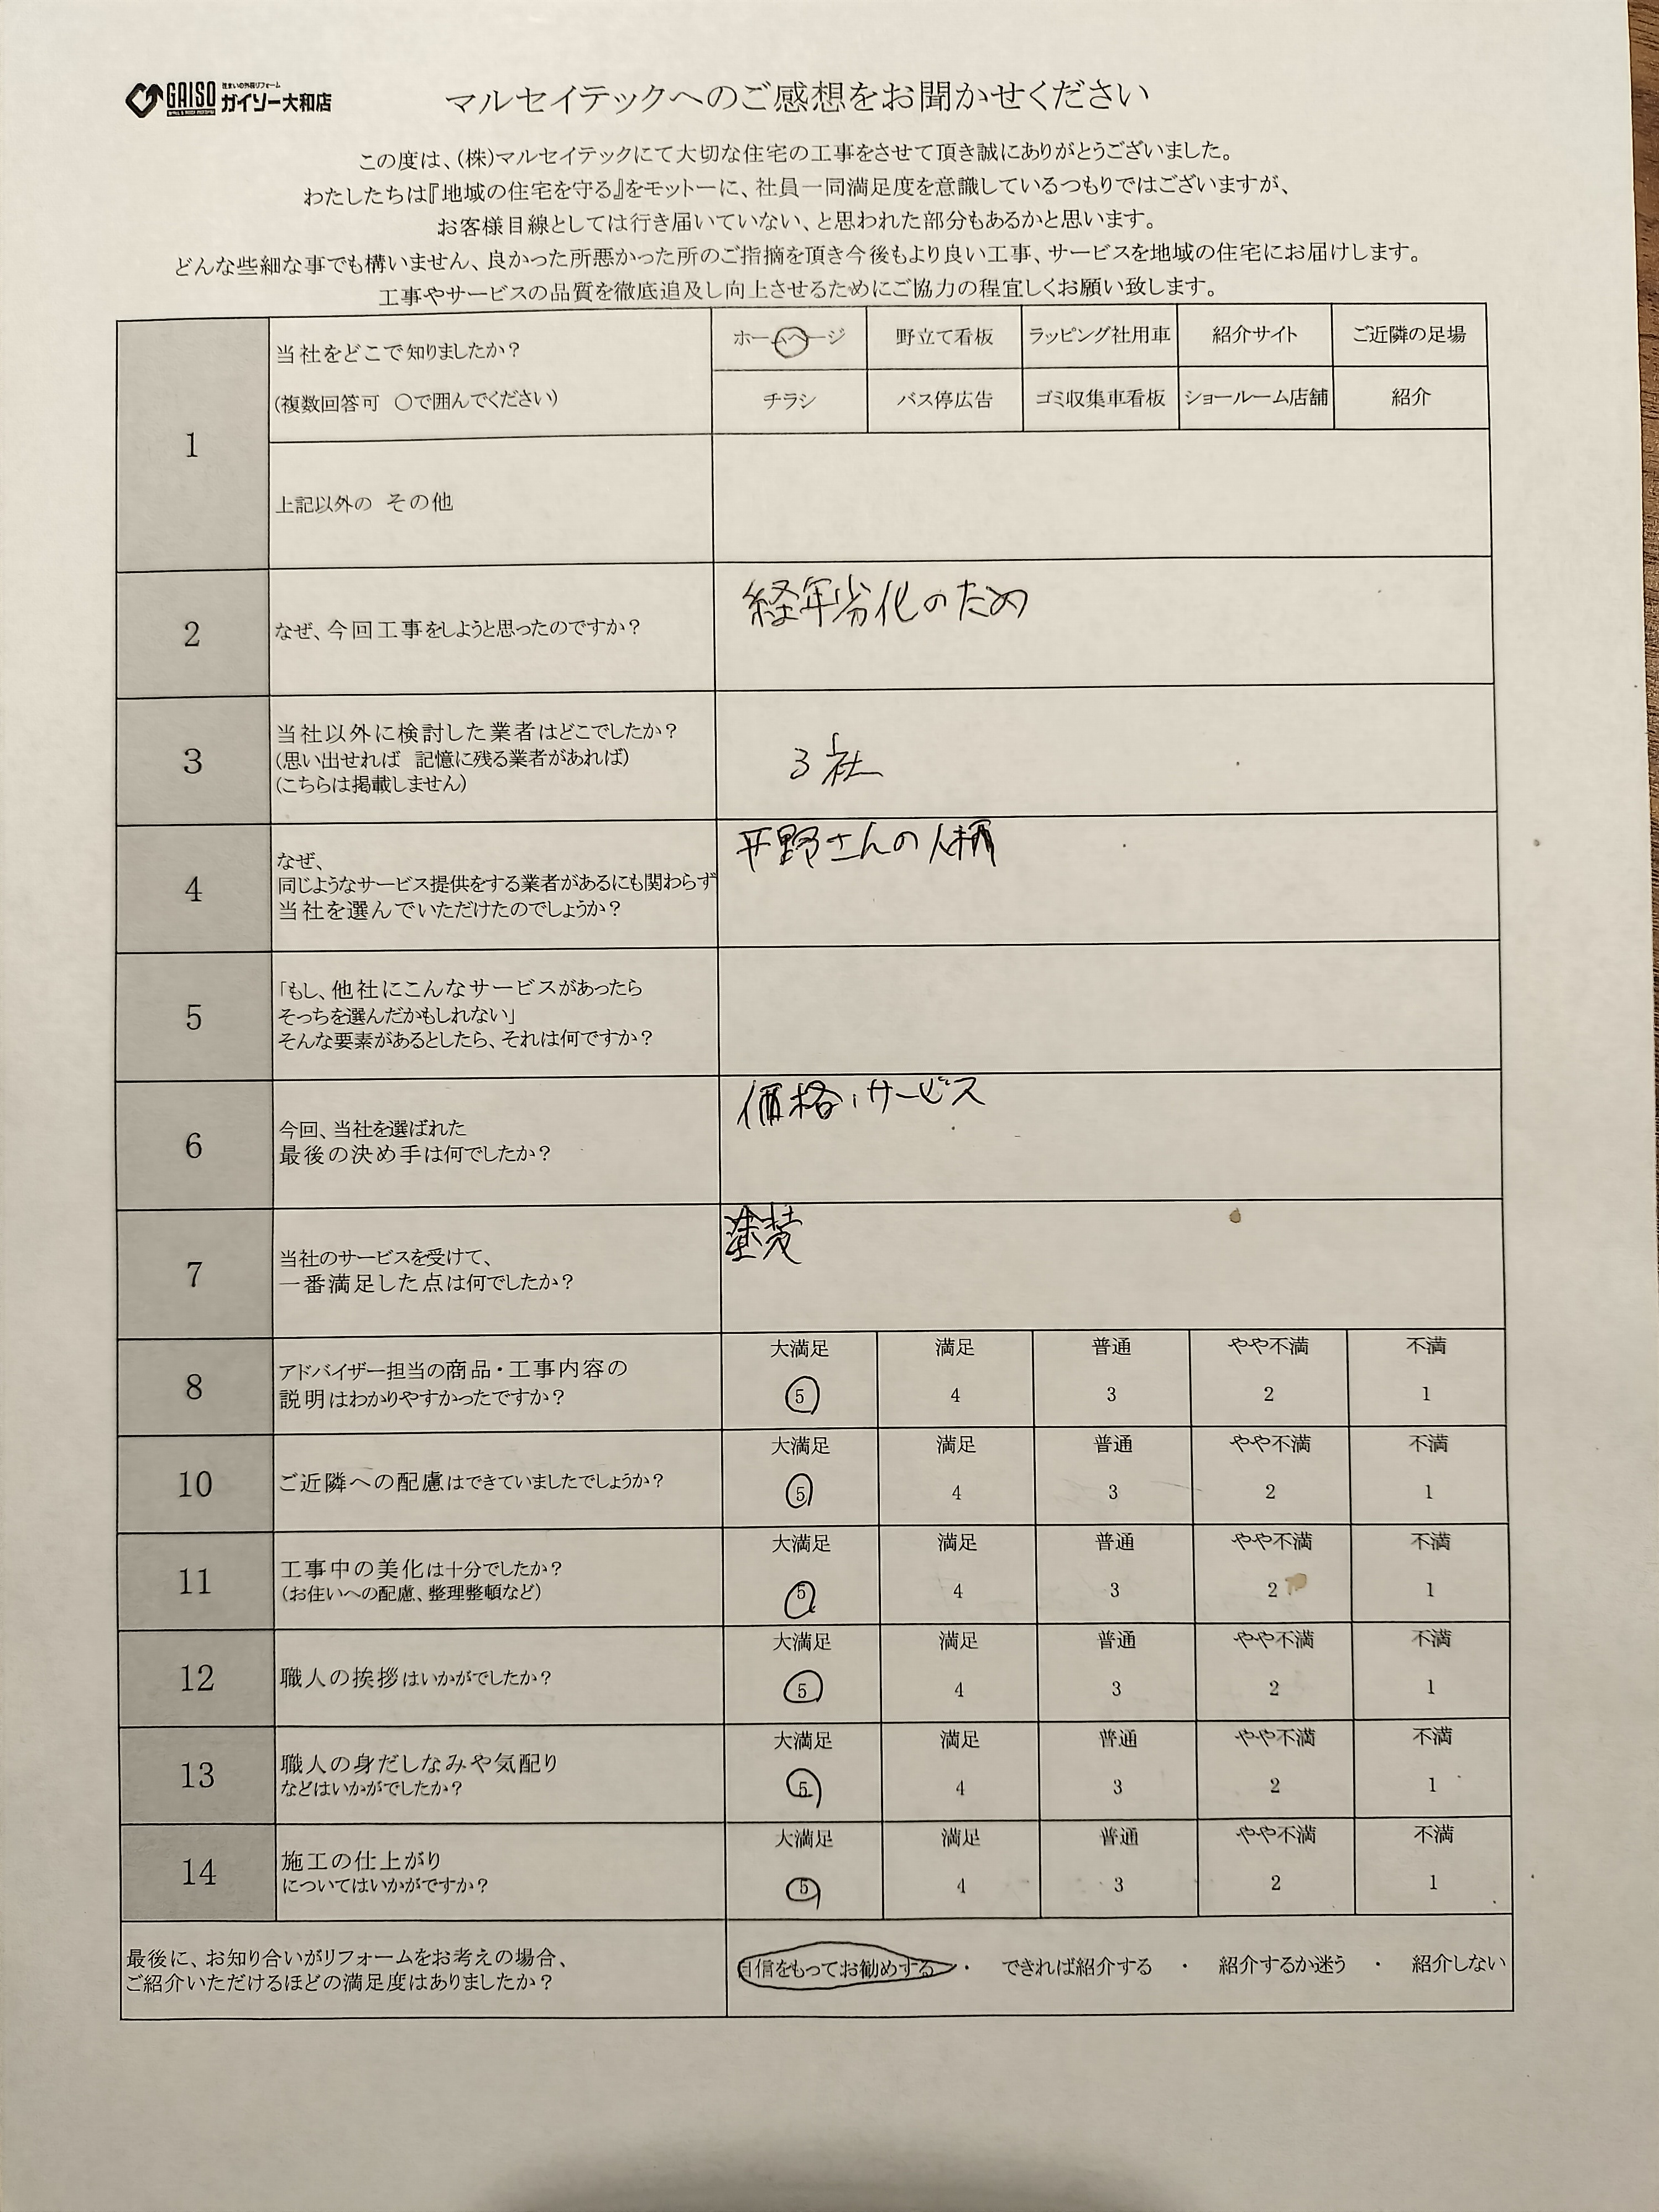 GAISO 住まいの外装リフォーム
ガイソー大和店
マルセイテックへのご感想をお聞かせください
この度は、(株)マルセイテックにて大切な住宅の工事をさせて頂き誠にありがとうございました。
わたしたちは『地域の住宅を守る』をモットーに、社員一同満足度を意識しているつもりではございますが、
お客様目線としては行き届いていない、と思われた部分もあるかと思います。
どんな些細な事でも構いません、良かった所悪かった所のご指摘を頂き今後もより良い工事、サービスを地域の住宅にお届けします。
工事やサービスの品質を徹底追及し向上させるためにご協力の程宜しくお願い致します。
1
当社をどこで知りましたか?
(複数回答可 ○で囲んでください)
ホームページ 野立て看板 ラッピング社用車 紹介サイト ご近隣の足場
チラシ バス停広告 ゴミ収集車看板 ショールーム店舗 紹介
上記以外の その他
2
なぜ、今回工事をしようと思ったのですか?
経年劣化のため
3
当社以外に検討した業者はどこでしたか?
(思い出せれば 記憶に残る業者があれば)
(こちらは掲載しません)
3社
4
なぜ、
同じようなサービス提供をする業者があるにも関わらず
当社を選んでいただけたのでしょうか?
平野さんの人柄
5
「もし、他社にこんなサービスがあったら
そっちを選んだかもしれない」
そんな要素があるとしたら、それは何ですか?
6
今回、当社を選ばれた
最後の決め手は何でしたか?
価格、サービス
7
当社のサービスを受けて、
一番満足した点は何でしたか?
塗装
8
アドバイザー担当の商品・工事内容の
説明はわかりやすかったですか?
大満足 満足 普通 やや不満 不満
5 4 3 2 1
10
ご近隣への配慮はできていましたでしょうか?
大満足 満足 普通 やや不満 不満
5 4 3 2 1
11
工事中の美化は十分でしたか?
(お住いへの配慮、整理整頓など)
大満足 満足 普通 やや不満 不満
5 4 3 2 1
12
職人の挨拶はいかがでしたか?
大満足 満足 普通 やや不満 不満
5 4 3 2 1
13
職人の身だしなみや気配り
などはいかがでしたか?
大満足 満足 普通 やや不満 不満
5 4 3 2 1
14
施工の仕上がり
についてはいかがですか?
大満足 満足 普通 やや不満 不満
5 4 3 2 1
最後に、お知り合いがリフォームをお考えの場合、
ご紹介いただけるほどの満足度はありましたか?
自信をもってお勧めする ・ できれば紹介する ・ 紹介するか迷う ・ 紹介しない